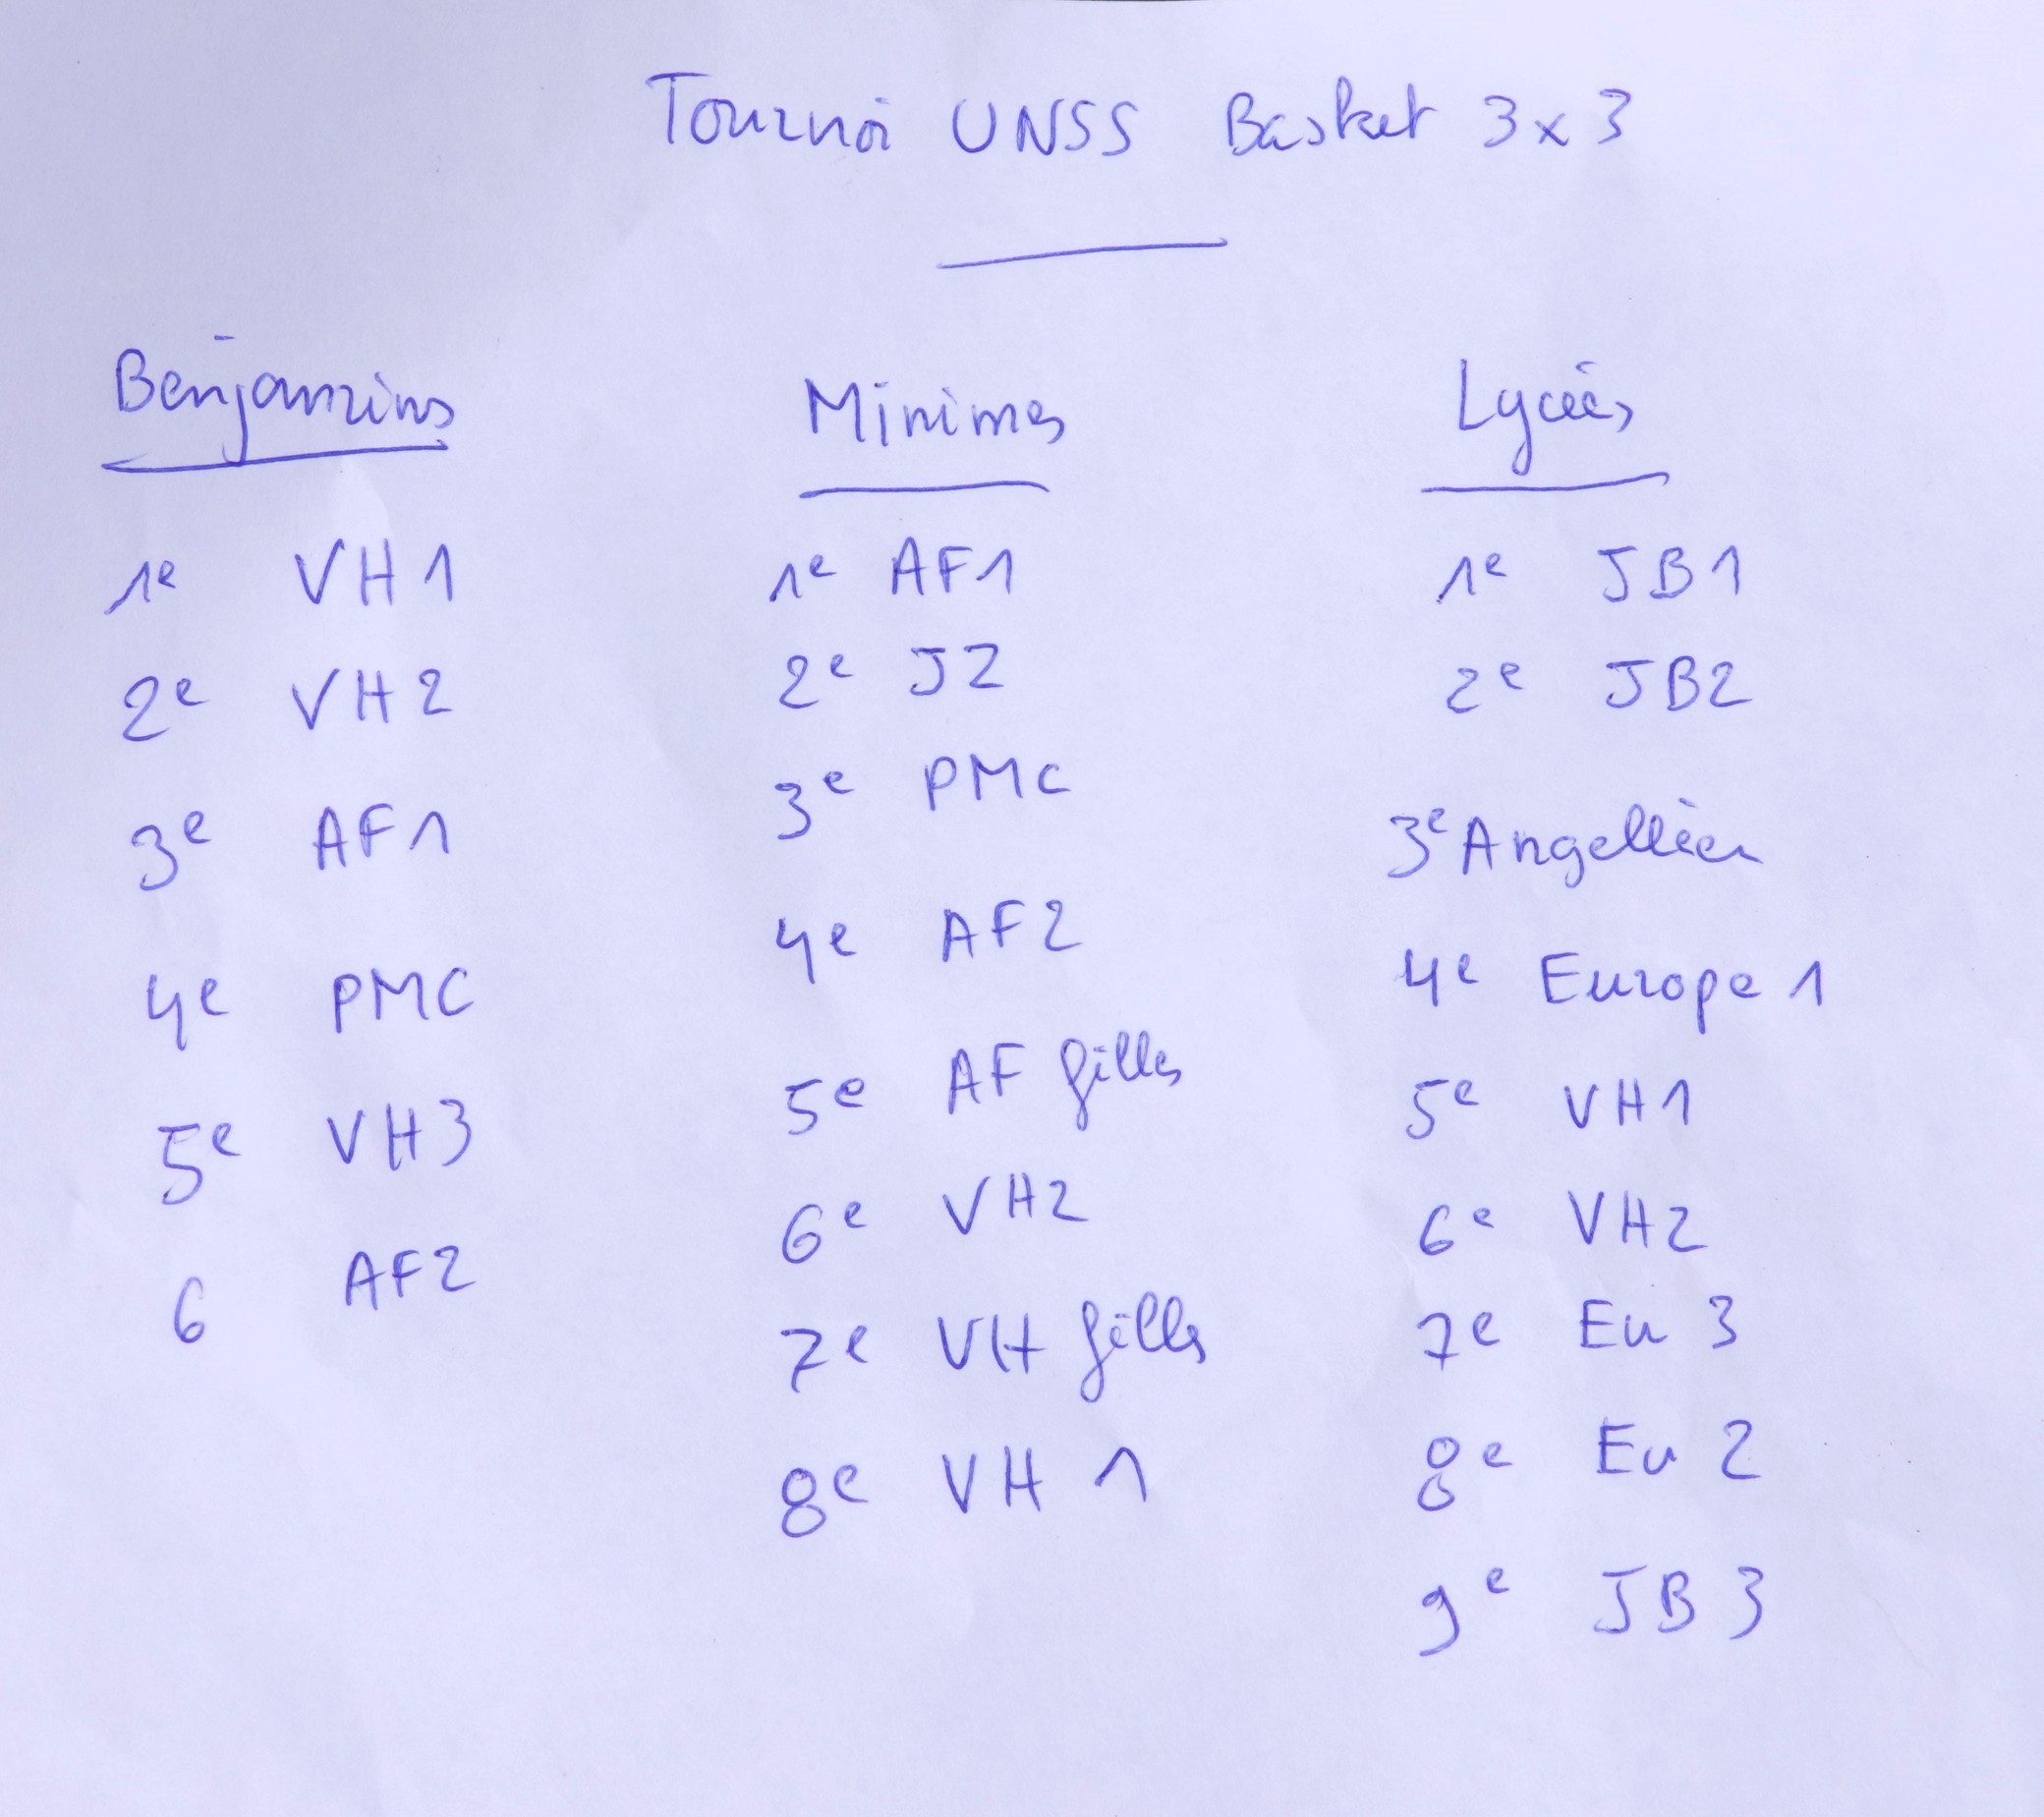 Tournoi UNSS Basket 3x3
Benjamins
1e VH1
2e VH2
3e AF1
4e PMC
5e VH3
6 AF2
Minimes
1e AF1
2e JZ
3e PMC
4e AF2
5e AF filles
6e VH2
7e VH filles
8e VH 1
Lycées
1e JB1
2e JB2
3e Angellier
4e Europe 1
5e VH1
6e VH2
7e Eu 3
8e Eu 2
9e JB 3